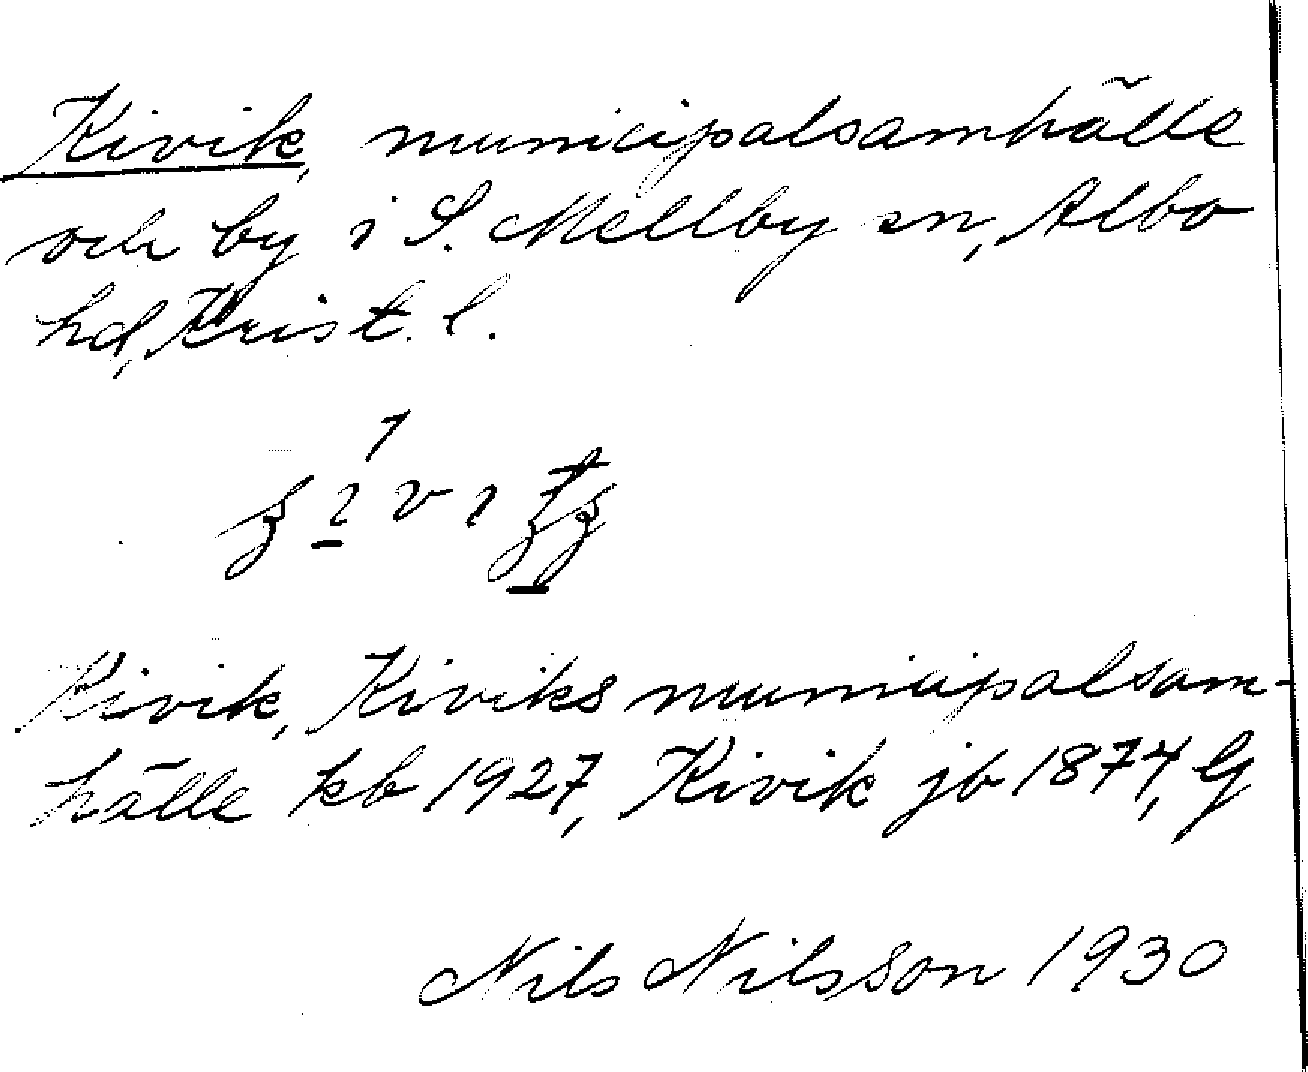 Kivik, municipalsamhälle
och by i S. Mellby sn, Albo
hd, Krist. l.
Kivik, Kiviks municipalsam-
hälle kb 1927, Kivik jb 1874, G
Nils Nilsson 1930